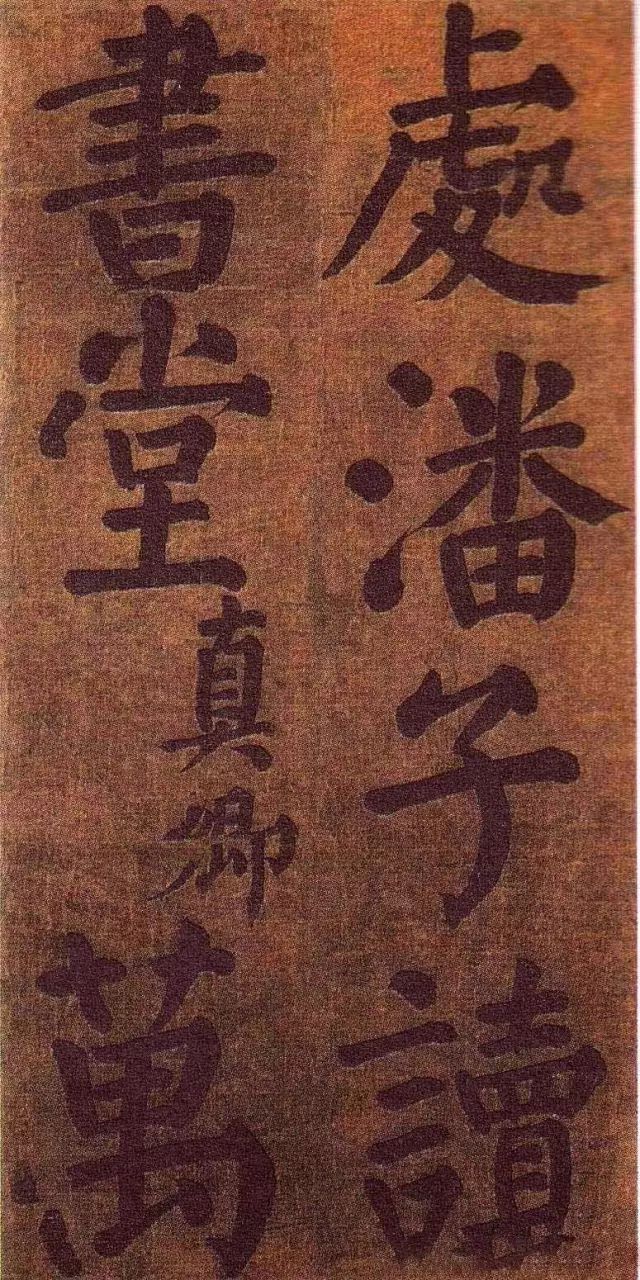 處潘子讀
書堂真卿萬